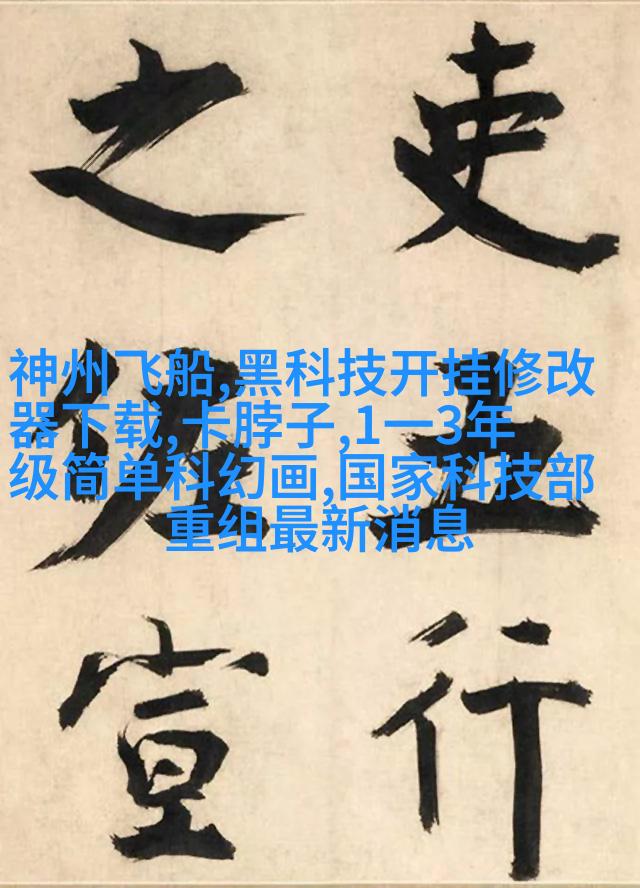 吏五行
之佐宣
神州飞船,黑科技开挂修改
器下载,卡脖子,1一3年
级简单科幻画,国家科技部
重组最新消息